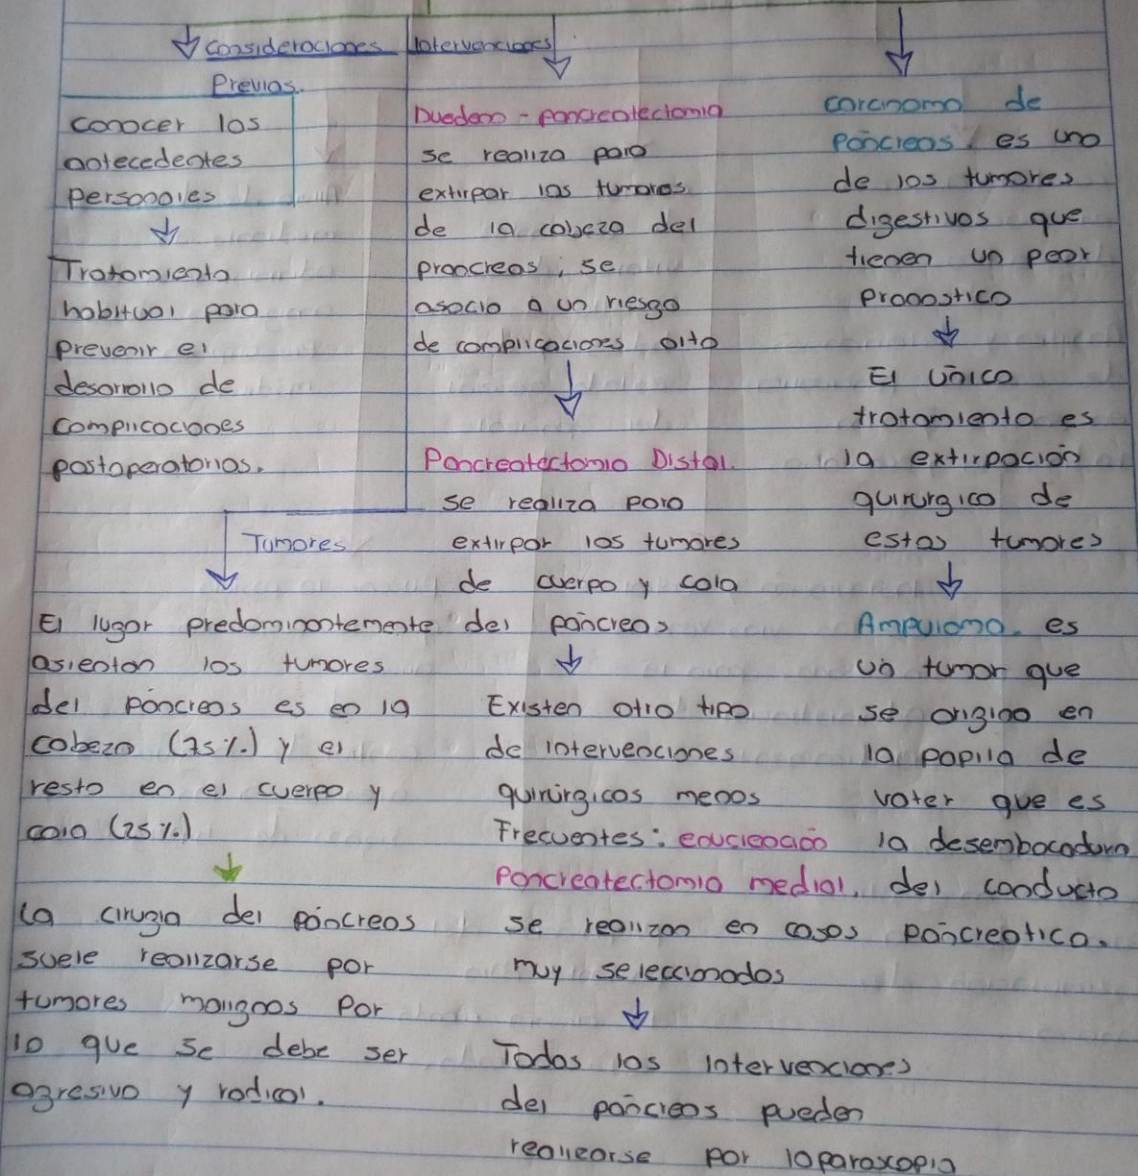 Consideraciones
Previas.
conocer los
antecedentes
personales
Tratamiento
habitual para
prevenir el
desarrollo de
complicaciones
postoperatorias.
Tumores
El lugar predominantemente
asientan los tumores
del páncreas es en la
cabeza (75%.) y el
resto en el cuerpo y
cola (25%.)
La cirugia del páncreas
suele realizarse por
tumores malignos Por
lo que se debe ser
agresivo y radical.
Intervenciones
Duedeno - pancreatectomia
se realiza para
extirpar las tumores
de la cabeza del
prancreas, se
asocia a un riesgo
de complicaciones alto
Pancreatectomia Distal.
se realiza para
extirpar los tumores
de cuerpo y cola
del páncreas
Existen otro tipo
de intervenciones
quirúrgicas menos
Frecuentes: enucleación
Pancreatectomia medial.
se realizan en casos
muy seleccionados
Todas las intervenciones
del páncreas pueden
realizarse por laparoscopia
carcinoma de
páncreas, es uno
de los tumores
digestivos que
tienen un peor
pronostico
El único
tratamiento es
la extirpación
quirurgica de
estos tumores
Ampuloma. es
un tumor que
se origina en
la papila de
vater que es
la desembocadura
del conducto
páncreatico.